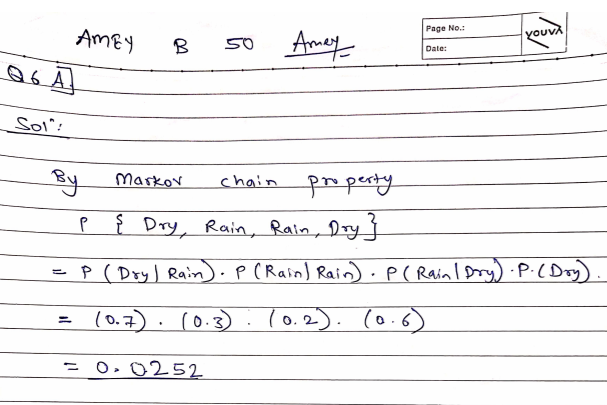 AMEY B 50 Amey
Page No.:
Date:
YOUVA
Q6 A]
Solⁿ:
By Markov chain property
P { Dry, Rain, Rain, Dry }
= P (Dry | Rain) · P (Rain | Rain) · P (Rain | Dry) · P · (Dry) .
= (0.7) · (0.3) · (0.2) · (0.6)
= 0.0252